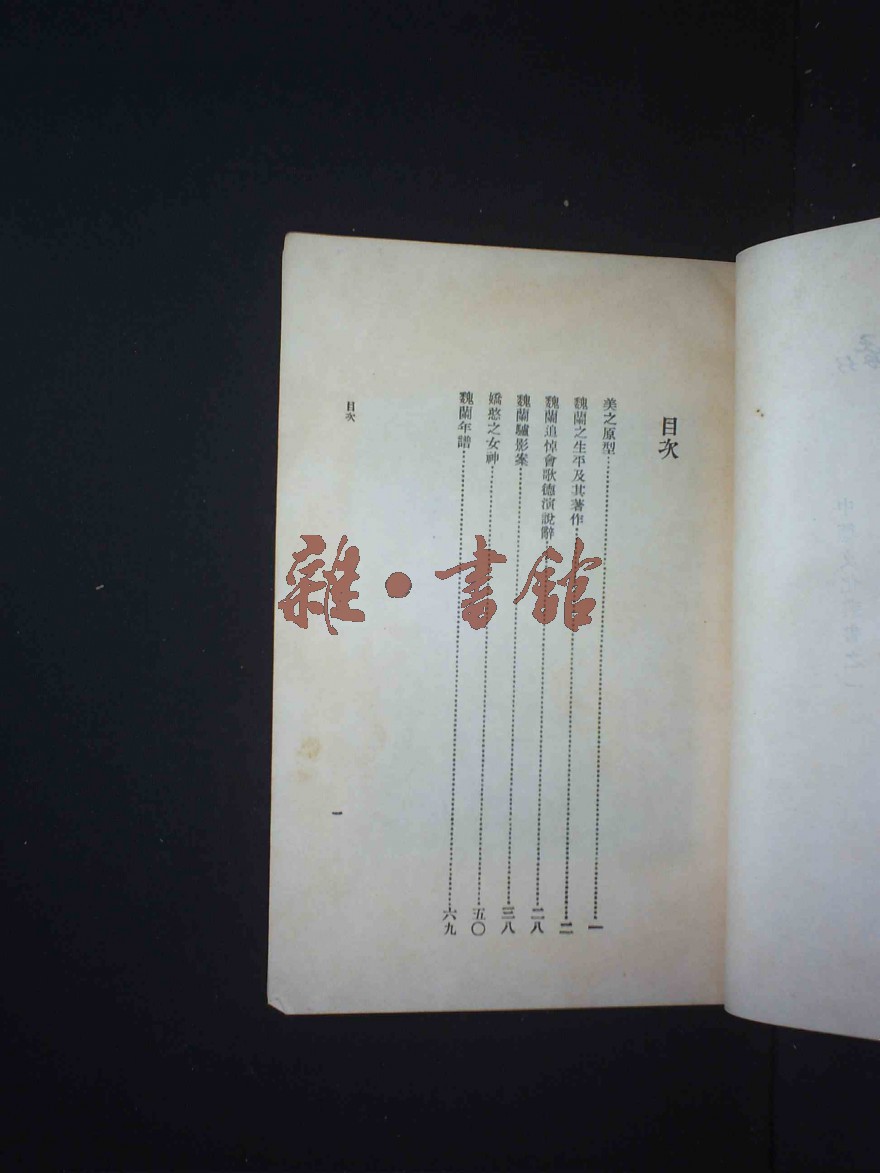 目次
美之原型……一
魏蘭之生平及其著作……二
魏蘭追悼會歌德演說辭……二八
魏蘭驢影案……三八
嬌憨之女神……五〇
魏蘭年譜……六九
目次
一
雜·書館